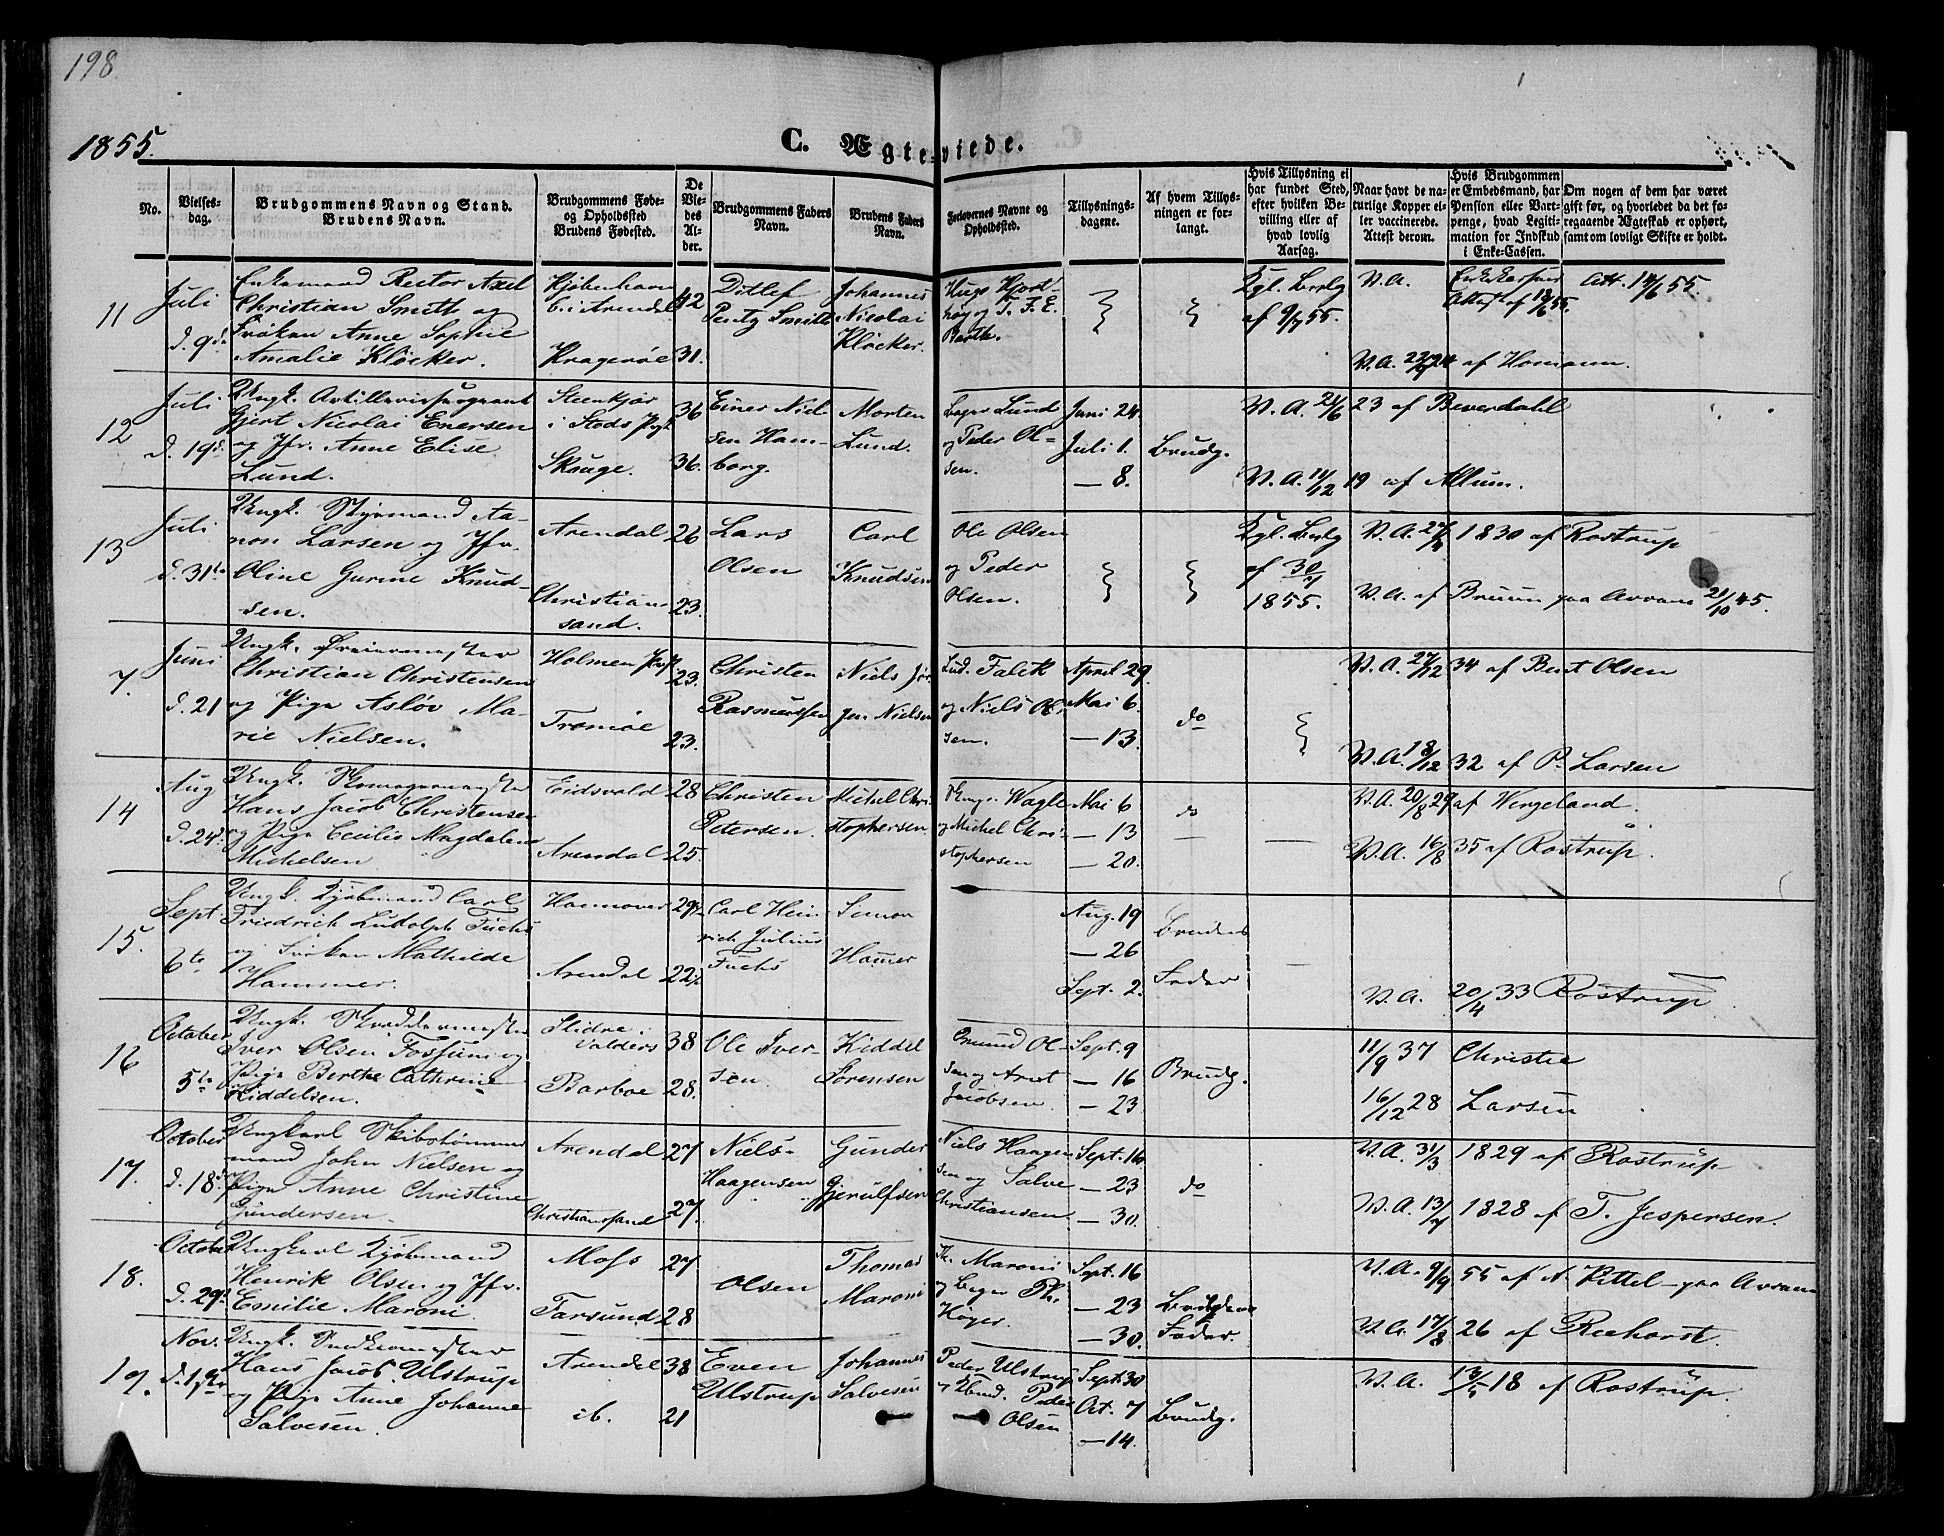 198
1855.
C. Ægteviede.
No.
Vielses-
dag.
Brudgommens Navn og Stand.
Brudens Navn.
Brudgommens Føde-
og Opholdssted
Brudens Fødested.
De
Vie-
des
Al-
der.
Brudgommens Faders
Navn.
Brudens Faders
Navn.
Forlovernes Navne og
Opholdssted.
Tillysnings-
dagene.
Af hvem Tillys-
ningen er for-
langt.
Hvis Tillysning ei
har fundet Sted,
efter hvilken Be-
villing eller af
hvad lovlig
Aarsag.
Naar havt de na-
turlige Kopper el-
ler vaccinerede.
Attest derom.
Hvis Brudgommen
er Embedsmand, har
Pension eller Vart-
penge, hvad Legiti-
mation for Indskud
i Enke-Cassen.
Om nogen af dem har været
gift før, og hvorledet da det fo-
regaaende Ægteskab er ophørt,
samt om lovligt Skifte er holdt.
11
Juli
d. 9de
Enkemand Rector Axel
Christian Smith og
Frøken Anne Sophie
Amalie Kløcker.
Kjøbenhavn
b. i Arendal
Kragerøe
42
31.
Ditlef
Pentz Smith
Johannes
Nicolai
Kløcker.
og T. F. E.
Barth.
Kgl. Bevlg
af 9/7 55.
V. A.
V. A. 22/9 24 af Homann.
Attest af
Att. 14/6 55.
12
Juli
d. 19d.
Ungk. Artillerisergeant
Gjert Nicolai Enersen
og Jfr. Anne Elise
Lund.
Steenkjær
i Stods Pgt
Skauge.
36
36.
Einer Niel-
sen Ham-
borg.
Morten
Lund.
Lund
og Peder Ol-
sen.
Juni 24
Juli 1.
— 8.
Brudg.
V. A. 21/6 23 af Beverdahl
V. A. 11/12 19 af Allum.
13
Juli
d. 31te
Ungk. Styrmand Aa-
non Larsen og Jfr.
Oline Gurine Knud-
sen.
Arendal
Christian-
sand.
26
23.
Lars
Olsen
Carl
Knudsen
Ole Olsen
og Peder
Olsen.
Kgl. Bevlg
af 30/7
1855.
V. A. 1830 af Rostrup
V. A. af Bruun paa Avvans 21/10 45.
7.
Juni
d. 21
Ungk. Dreiermester
Christian Christensen
og Pige Asløv Ma-
rie Nielsen.
Holmen Pgt
Tromøe
23.
23.
Christen
Rasmussen
Niels Jør-
gen Nielsen
Lud. Falck
og Niels Ol-
sen.
April 29.
Mai 6.
— 13.
do
V. A. 27/12 34 af Bent Olsen
V. A. 18/12 32 af P. Larsen
14
Aug
d. 24d.
Ungk. Skomagermester
Hans Jacob Christensen
og Pige Cecilie Magdalene
Michelsen
Eidsvold
Arendal
28
25.
Christen
Petersen.
Michel Chri-
stophersen.
Wagle
og Michel Chri-
stophersen
Mai 6
— 13
— 20.
do
—
—
V. A. 20/8 29 af Wergeland.
V. A. 16/8 35 af Rostrup.
15.
Sept.
6te
Ungk. Kjøbmand Carl
Friedrich Ludolph Fuchs
og Frøken Mathilde
Hammer.
Hannover
Arendal
29
22
Carl Hein-
rich Julius
Fuchs
Simon
Hamer
Aug. 19
— 26
Sept. 2.
Brudens
Fader
—
V. A. 20/4 33 Rostrup.
16
October
5te
Ungk. Skræddermester
Iver Olsen Fossum og
Pige Berthe Cathrine
Kiddelsen.
Slidre i
Valders
Barboe
38
28.
Ole Iver-
sen.
Kiddel
Sørensen
Ol-
sen og
Jacobsen
Sept. 9
— 16
— 23
Brudg.
11/9 37 Christie
16/12 28 Larsen
17.
October
d. 18de
Ungkarl Skibstømmer-
mand John Nielsen og
Pige Anne Christine
Gundersen.
Arendal
Christianssand
27
27.
Niels
Haagensen
Gunder
Gjerulfsen
Niels Haagen-
sen og Salve
Christiansen
Sept. 16
— 23
— 30.
do
V. A. 31/3 1829 af Rostrup
V. A. 13/7 1828 af T. Jespersen.
18.
October
d. 29d.
Ungkarl Kjøbmand
Henrik Olsen og Jfr.
Emilie Maroni.
Moss
Farsund
27
28
Olsen
Thomas
Maroni
Th. Maroni
og
Høyer.
Sept. 16
— 23
— 30.
Brudens
Fader.
V. A. 9/9 55 af N. Kittel paa Avvans
V. A. 17/8 26 af Reehorst.
19.
Nov.
d. 1ste
Ungk. Snedkermester
Hans Jacob Ulstrup
og Pige Anne Johanne
Salvesen
Arendal
ib.
38
21
Even
Ulstrup
Johannes
Salvesen
Peder Ulstrup
Peder
Olsen
Sept. 30
Oct. 7
— 14.
Brudg.
V. A. 13/5 18 af Rostrup.